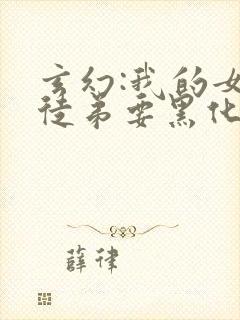 玄幻:我的女
徒弟要黑化
薛律